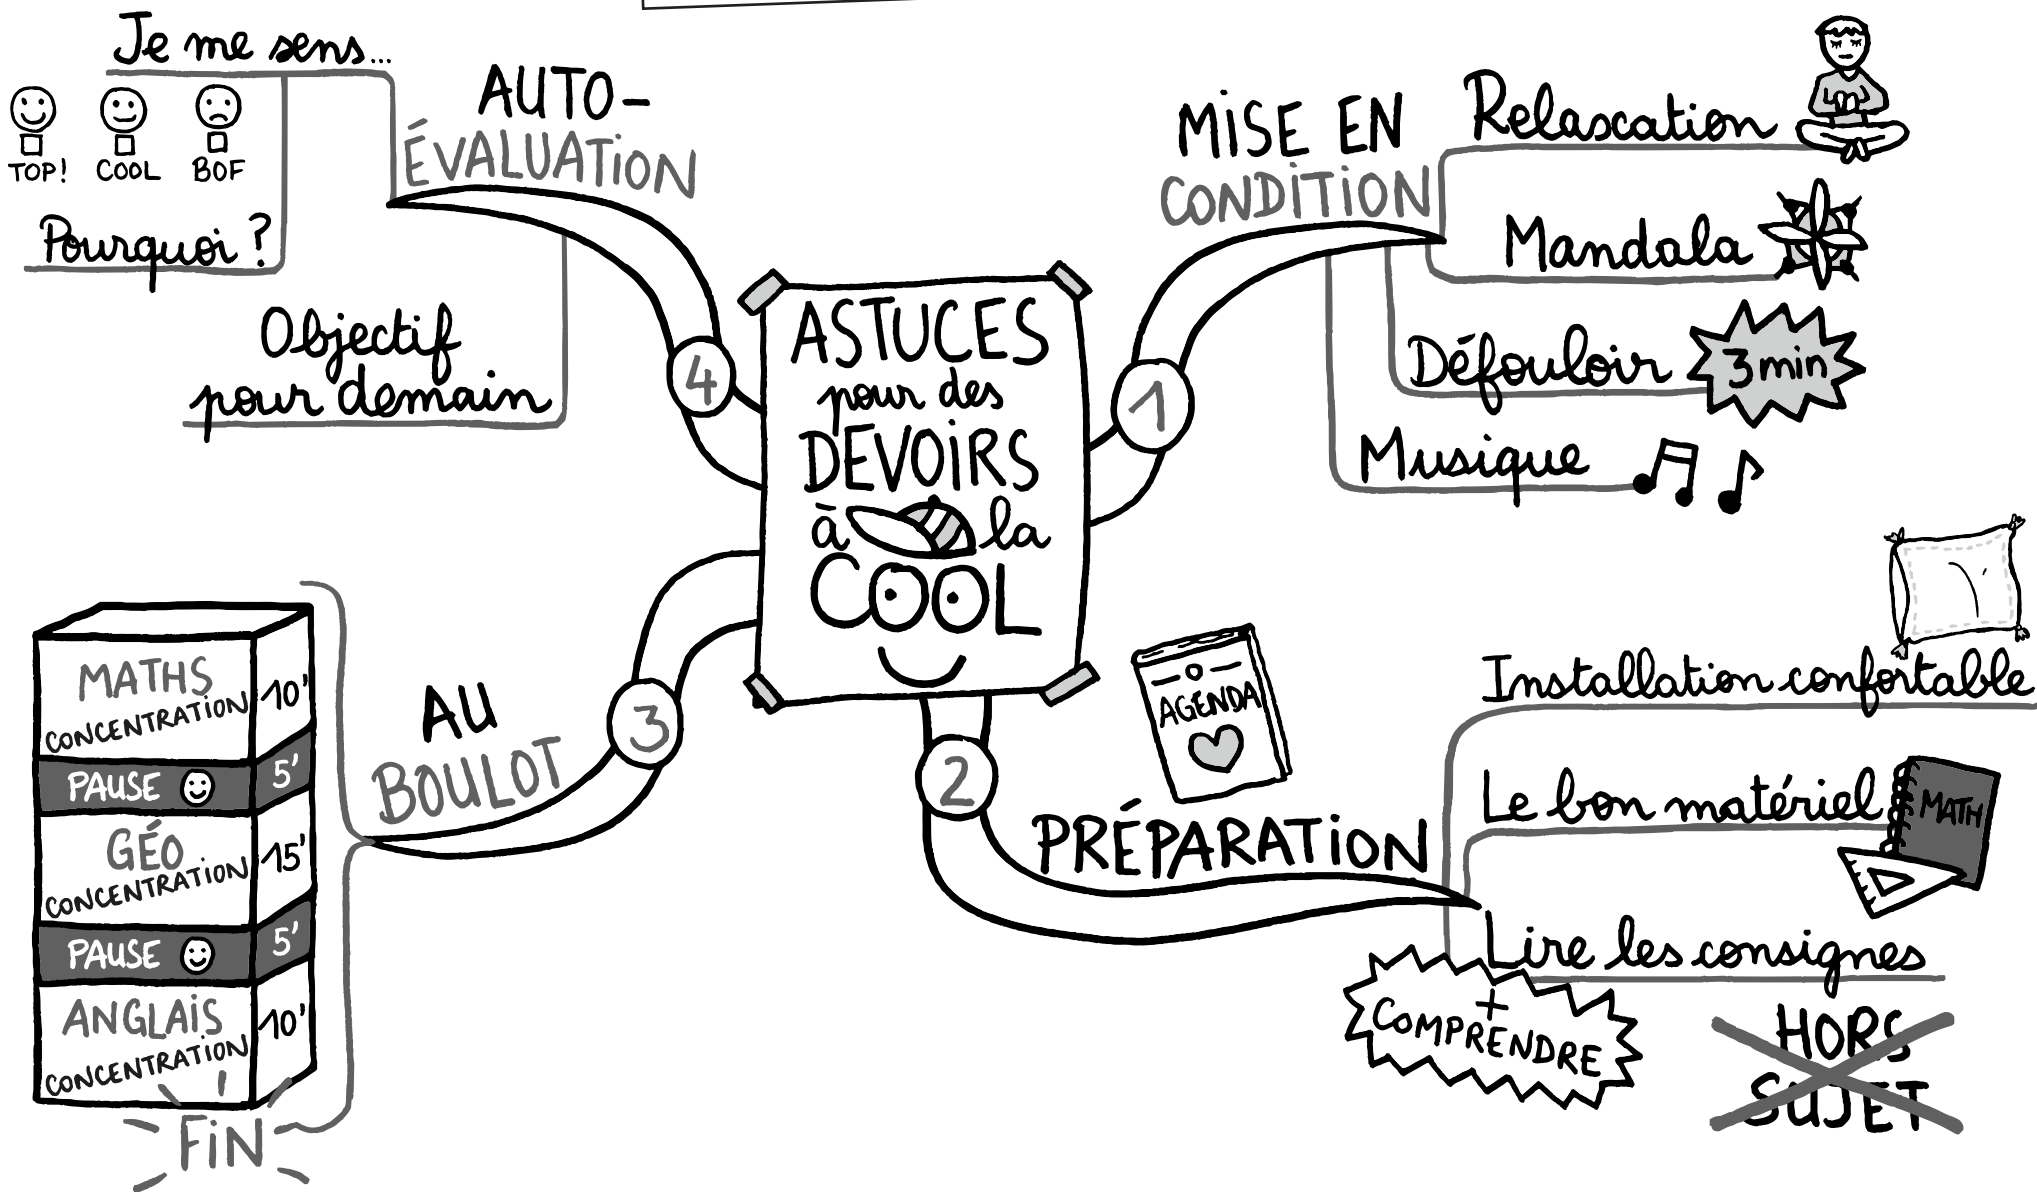 ASTUCES
pour des
DEVOIRS
à la
COOL
1
MISE EN
CONDITION
Relaxation
Mandala
Défouloir 3 min
Musique
2
AGENDA
PRÉPARATION
Installation confortable
Le bon matériel
MATH
Lire les consignes
+
COMPRENDRE
HORS
SUJET
3
AU
BOULOT
MATHS
CONCENTRATION 10'
PAUSE 5'
GÉO
CONCENTRATION 15'
PAUSE 5'
ANGLAIS
CONCENTRATION 10'
FIN
4
AUTO-
ÉVALUATION
Je me sens...
TOP! COOL BOF
Pourquoi ?
Objectif
pour demain